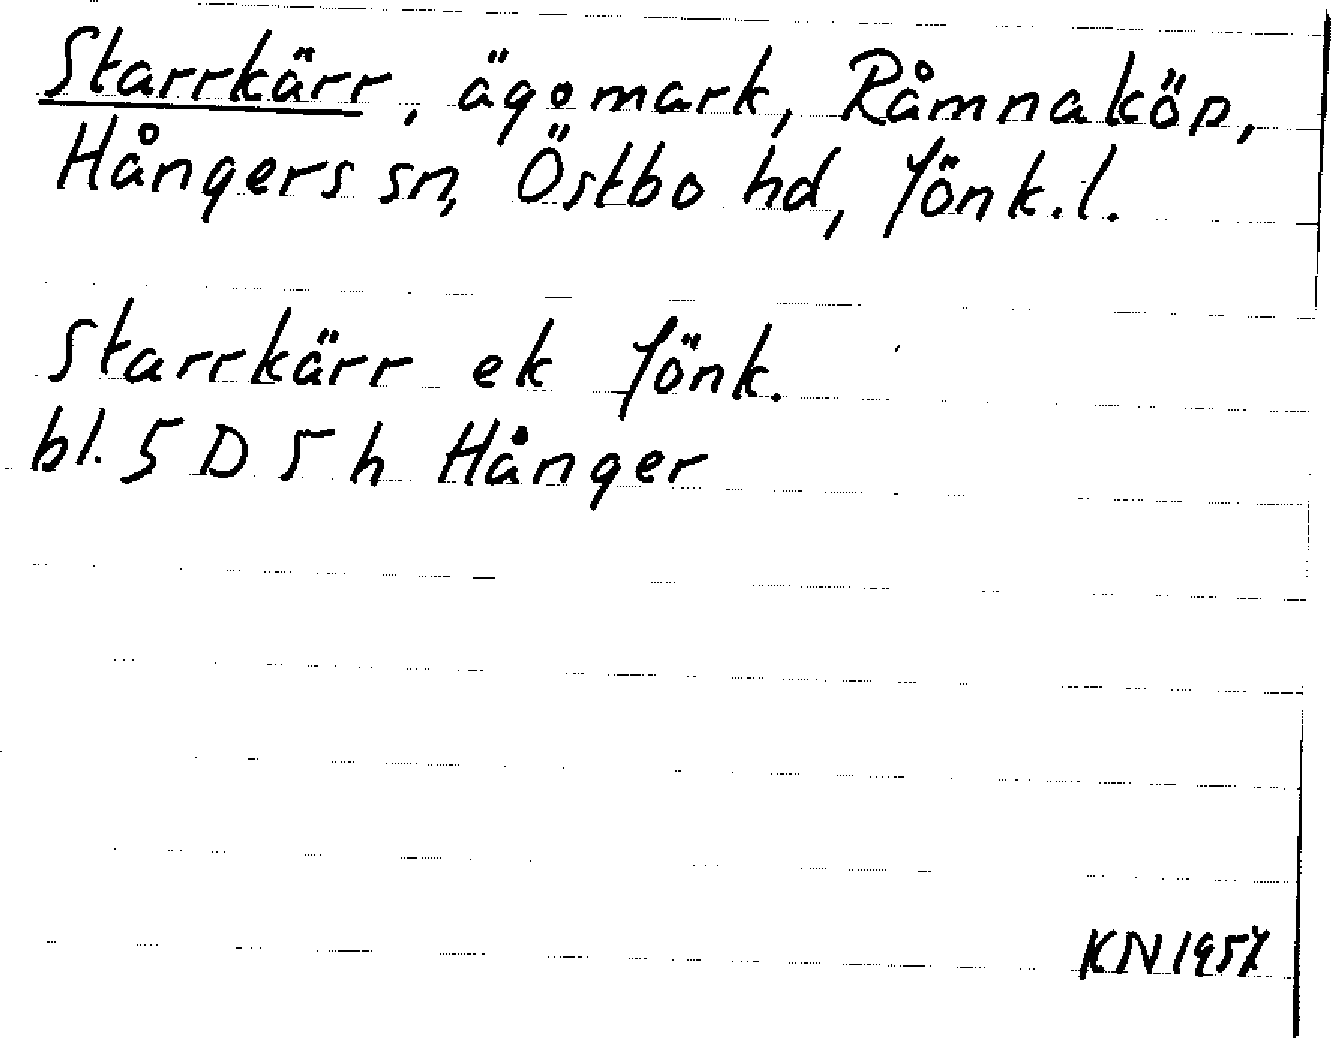 Starrkärr, ägomark, Råmnaköp,
Hångers sn, Östbo hd, Jönk.l.
Starrkärr ek Jönk.
bl. 5 D 5 h Hånger
KN 1957